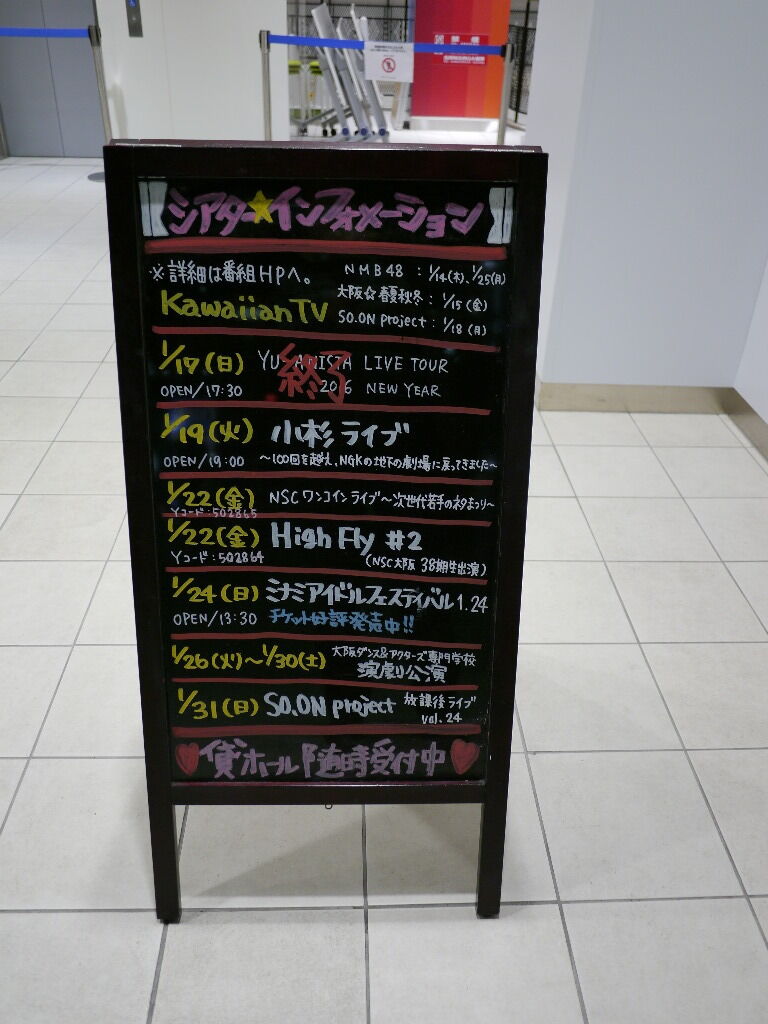 シアター★インフォメーション
※詳細は番組HPへ。
KawaiianTV
NMB48 : 1/14(木)、1/25(月)
大阪☆春夏秋冬 : 1/15(金)
SO.ON project : 1/18(月)
1/17(日) LIVE TOUR
終了
OPEN/17:30 2016 NEW YEAR
1/19(火) 小杉ライブ
OPEN/19:00 ～100回を越え、NGKの地下の劇場に戻ってきました～
1/22(金) NSCワンコインライブ～次世代若手のネタまつり～
Yコード:502865
1/22(金) High Fly #2
Yコード:502864 (NSC大阪 38期生出演)
1/24(日) ミナミアイドルフェスティバル1.24
OPEN/13:30 チケット好評発売中!!
1/26(火)～1/30(土) 大阪ダンス&アクターズ専門学校
演劇公演
1/31(日) SO.ON project 放課後ライブ
vol.24
♥貸ホール随時受付中♥